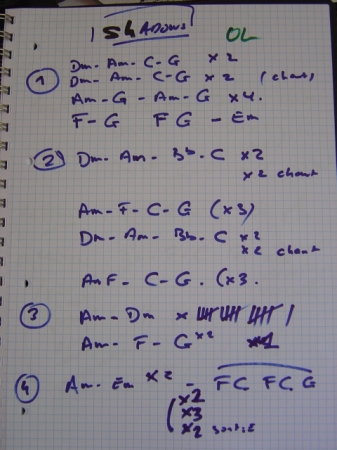 Shadows
OL
① Dm- Am- C- G x2
Dm- Am- C-G x2 (chant)
Am-G - Am-G x4.
F-G FG - Em
② Dm- Am- Bb- C x2
x2 chant
Am-F- C-G (x3)
Dm- Am- Bb- C x2
x2 chant
AmF- C-G. (x3.
③ Am- Dm x
Am- F- G x2
④ Am- Em x2 - FC FC G
x2
x3
x2 sortie